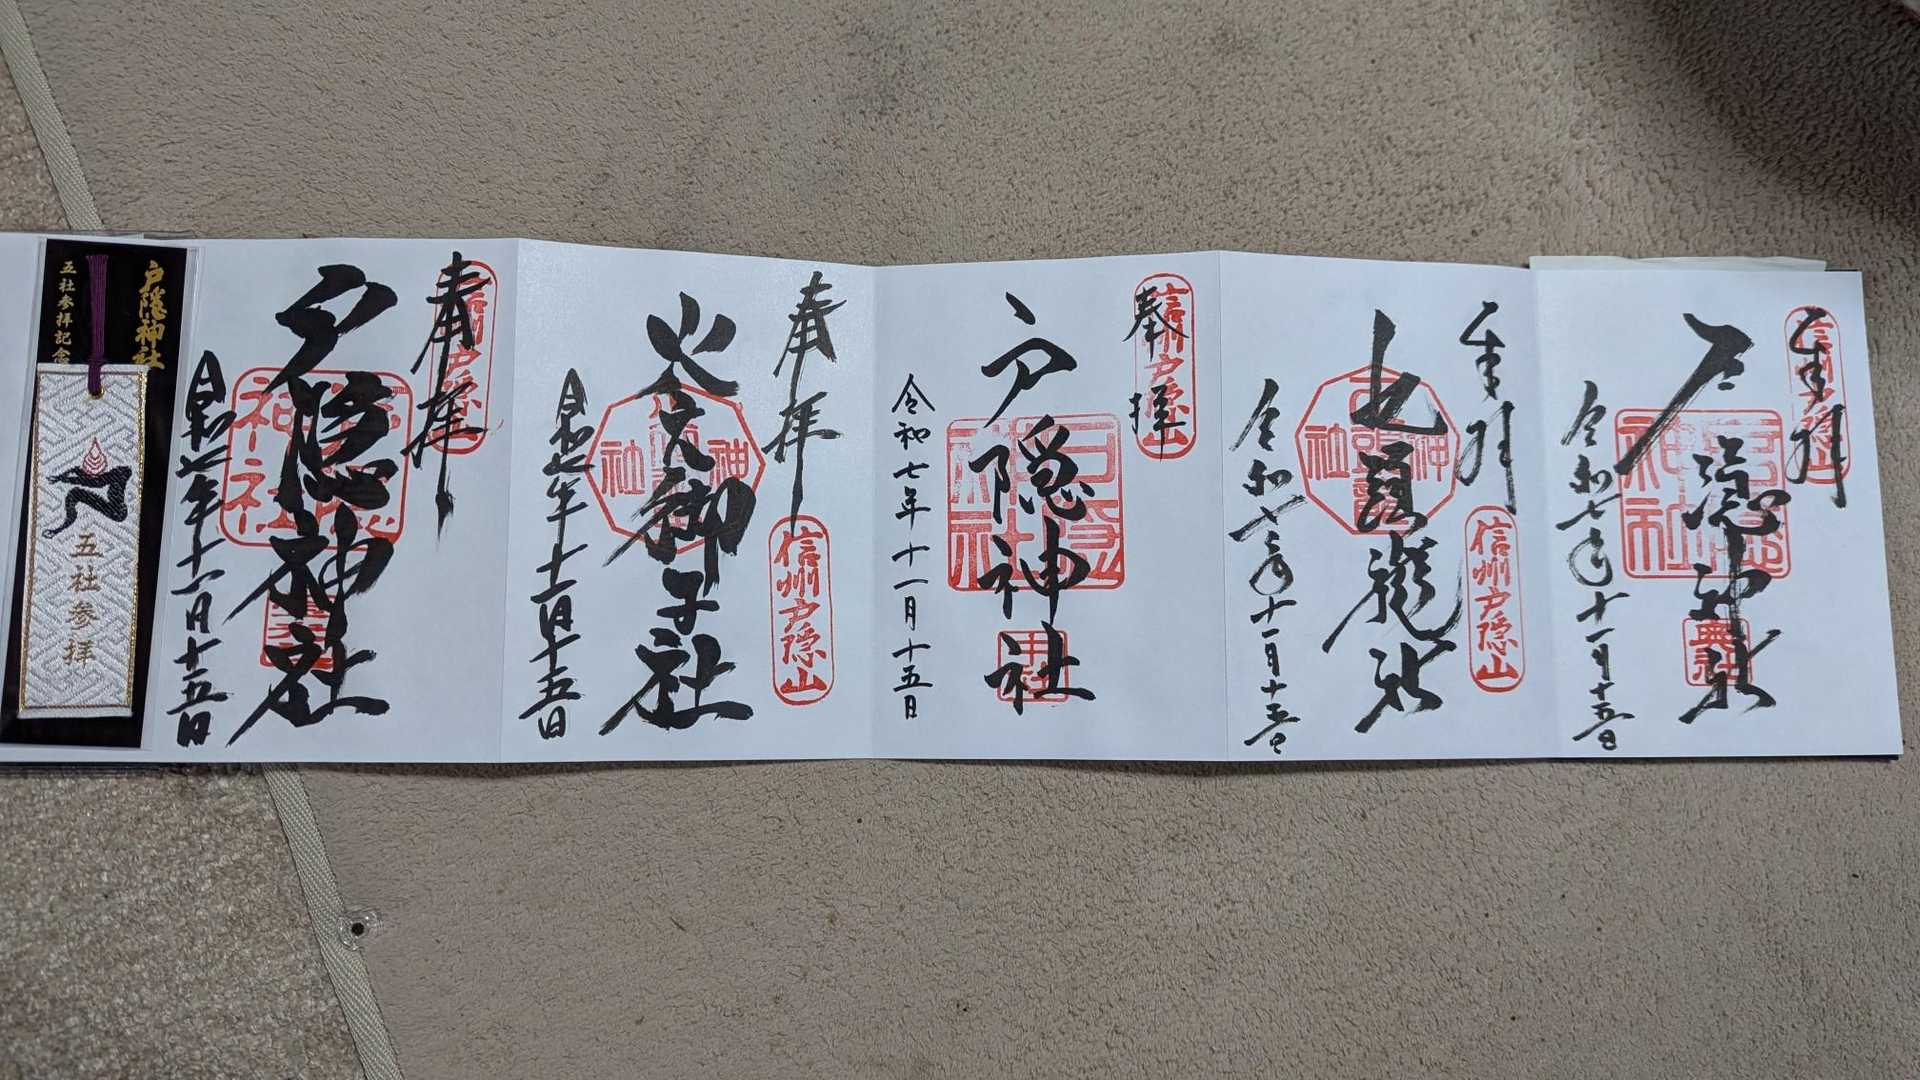 戸隠神社
五社参拝記念
五社参拝
奉拝
信州戸隠山
戸隠神社
宝光社
令和七年十一月十五日
奉拝
信州戸隠山
火之御子社
令和七年十一月十五日
奉拝
信州戸隠山
戸隠神社
中社
令和七年十一月十五日
奉拝
信州戸隠山
九頭龍社
令和七年十一月十五日
奉拝
信州戸隠山
戸隠神社
奥社
令和七年十一月十五日